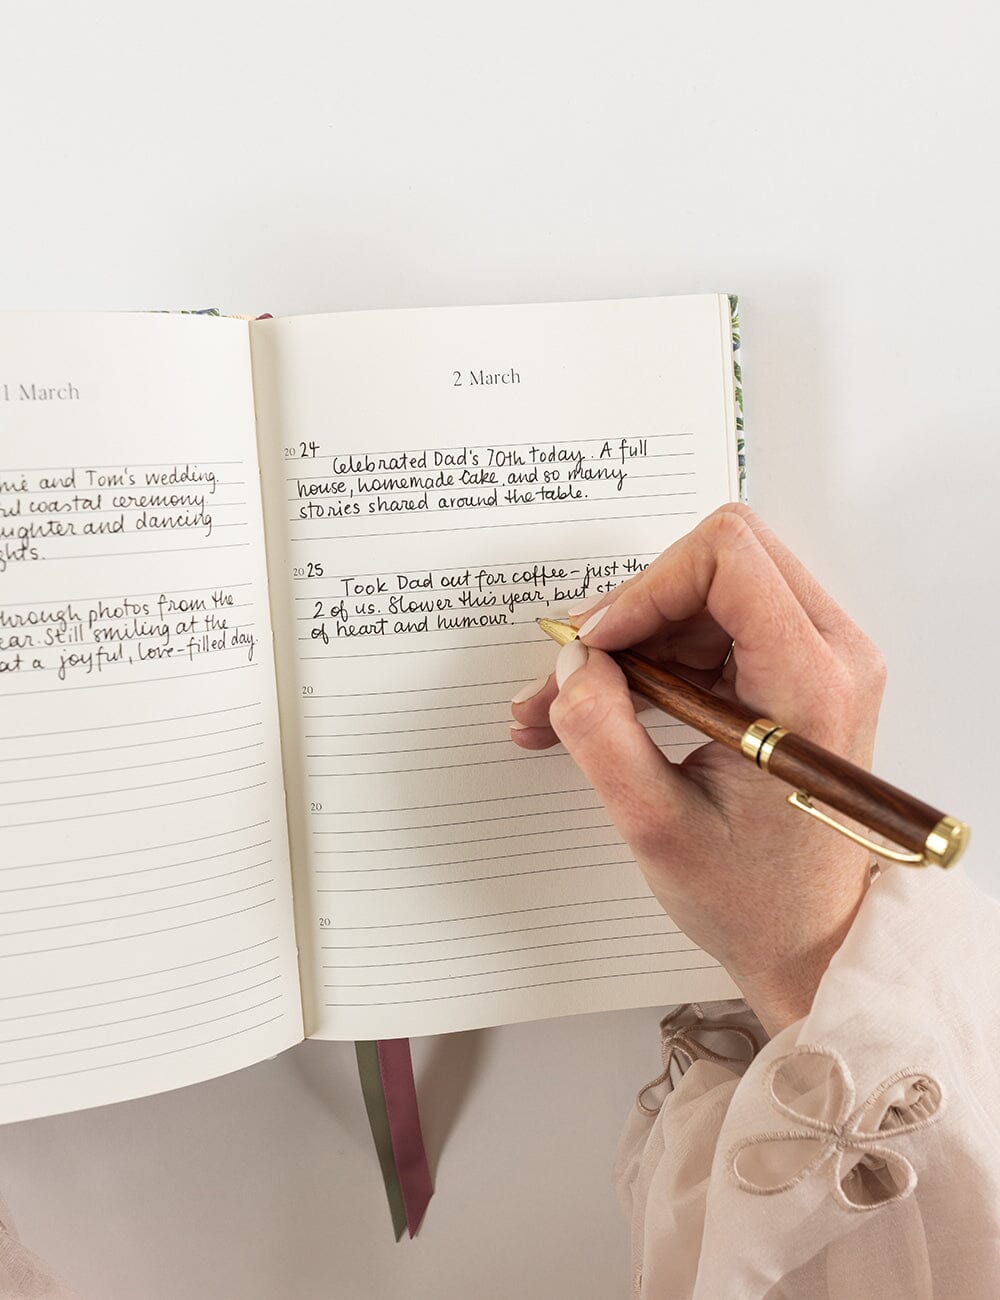 1 March
and Tom's wedding.
coastal ceremony
and dancing
through photos from the
Still smiling at the
at a joyful, love-filled day.
2 March
2024
Celebrated Dad's 70th today. A full
house, homemade cake, and so many
stories shared around the table.
2025
Took Dad out for coffee - just the
2 of us. Slower this year, but
of heart and humour.
20
20
20